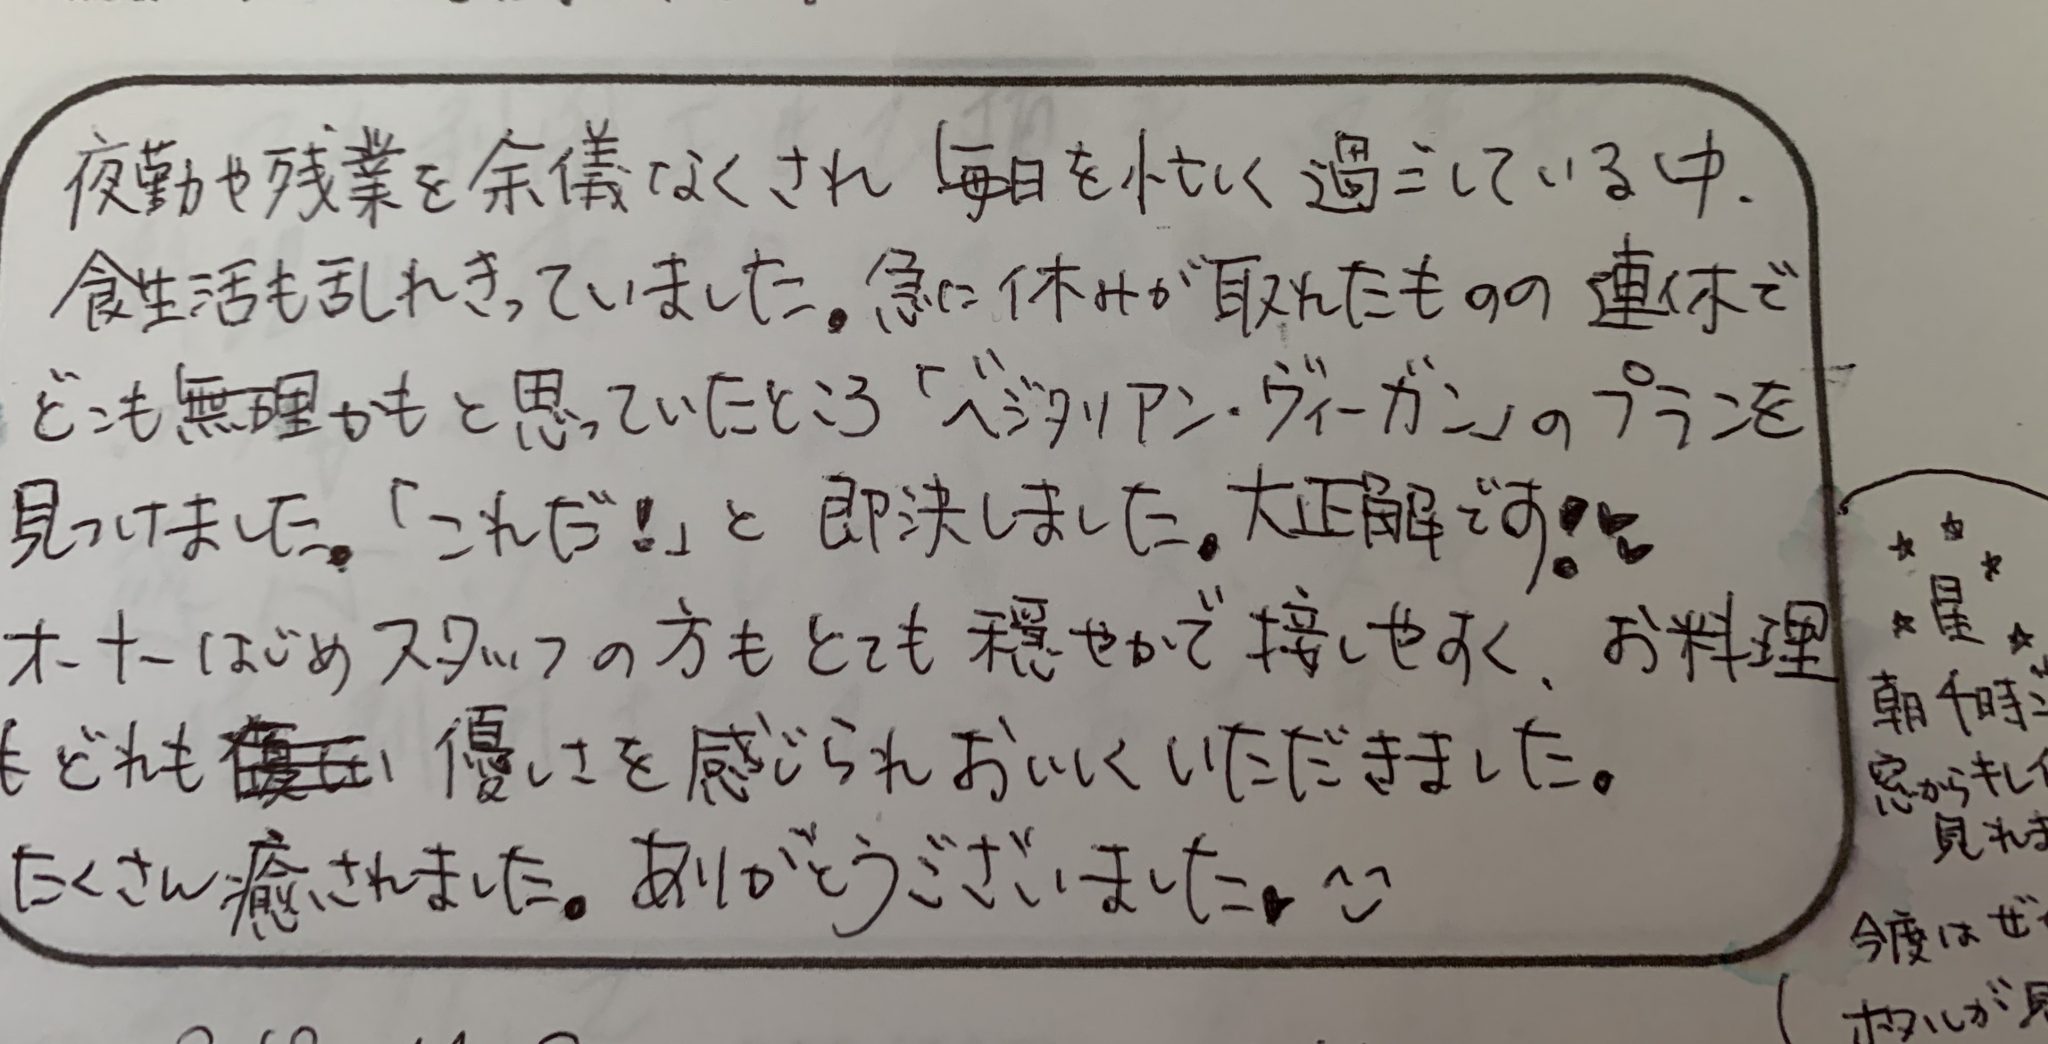 夜勤や残業を余儀なくされ 毎日を忙しく過ごしている中、
食生活も乱れきっていました。急に休みが取れたものの 連休で
どこも無理かもと思っていたところ「ベジタリアン・ヴィーガン」のプランを
見つけました。「これだ!」と 即決しました。大正解です!♥
オーナーはじめスタッフの方もとても穏やかで接しやすく、お料理
もどれも 優しさを感じられおいしくいただきました。
たくさん癒されました。ありがとうございました。^^
星
朝4時ご
窓からキレイ
見れま
今度はぜ
ホタルが見